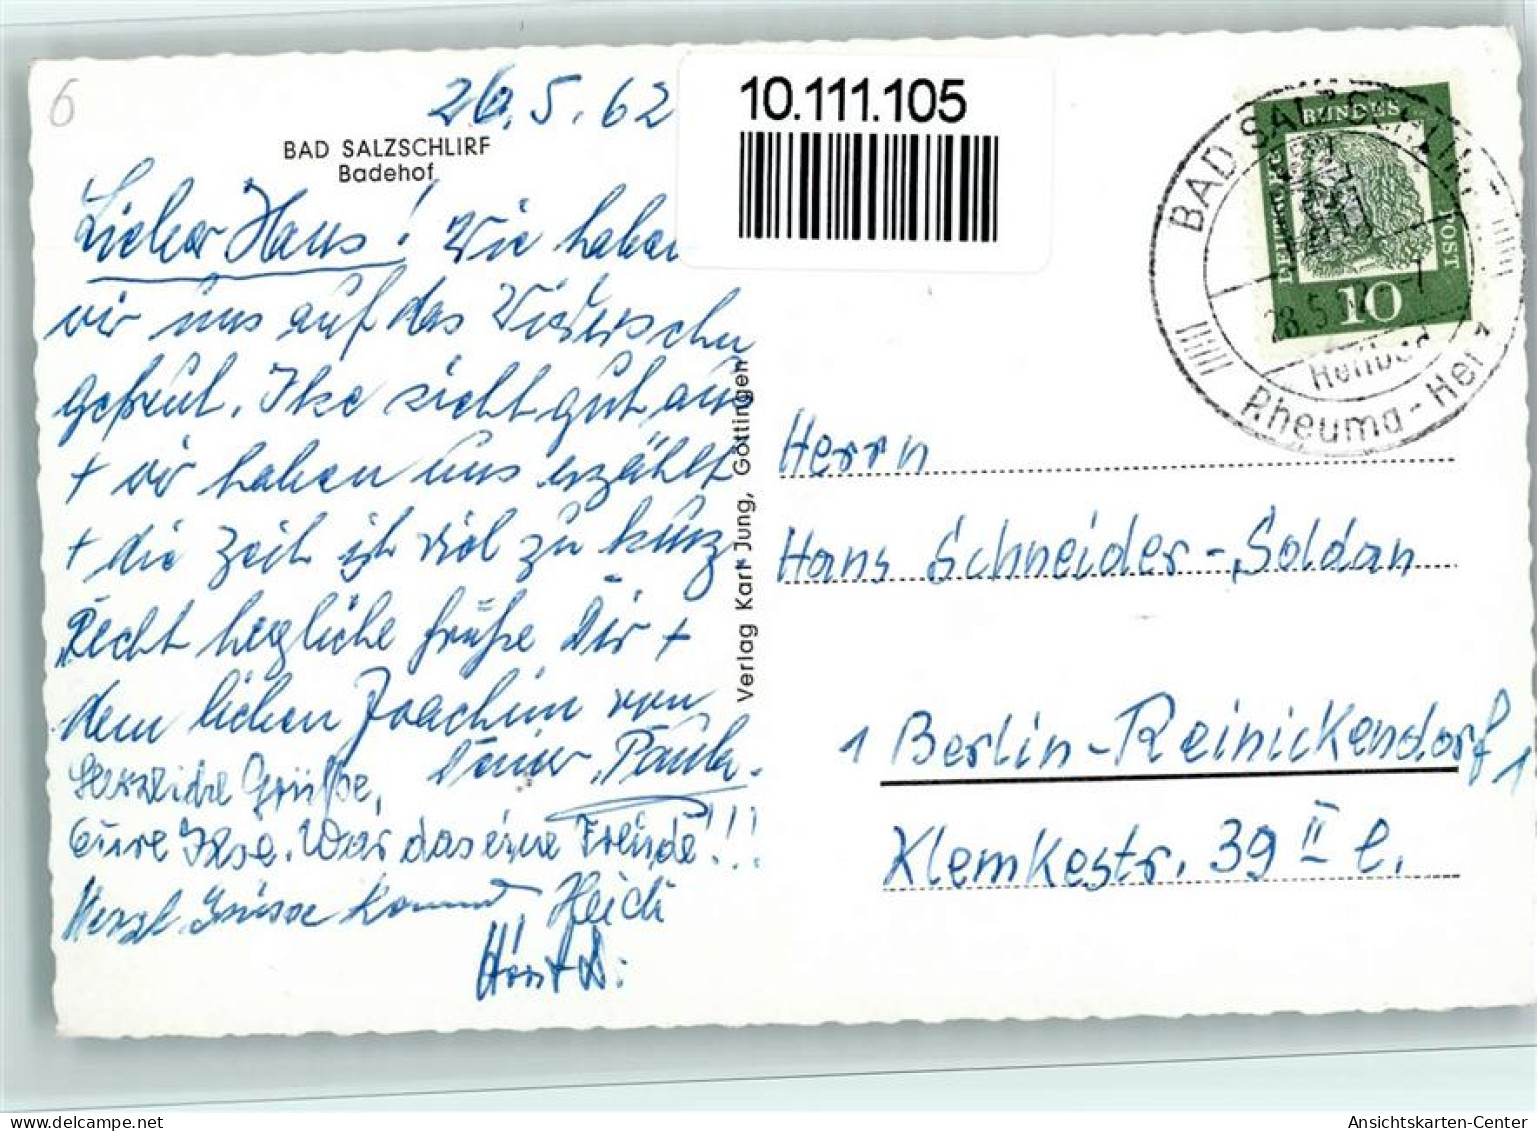 6
26.5.62
BAD SALZSCHLIRF
Badehof
Lieber Hans! Wie haben
wir uns auf das Wiedersehn
gefreut. Ilse sieht gut aus
+ wir haben uns erzählt
+ die Zeit ist viel zu kurz
Recht herzliche Grüße Dir +
dem lieben Joachim von
Deiner Paula.
Herzliche Grüße,
Eure Ilse. War das eine Freude!!!
Herzl. Grüsse Heidi
Horst D.
Verlag Karl Jung, Göttingen
10.111.105
DEUTSCHE BUNDESPOST
10
BAD SALZSCHLIRF
28.5.62-7
Heilbad
Rheuma-Herz
Herrn
Hans Schneider-Soldan
1 Berlin-Reinickendorf 1
Klemkestr. 39 II l.
delcampe.net
Ansichtskarten-Center